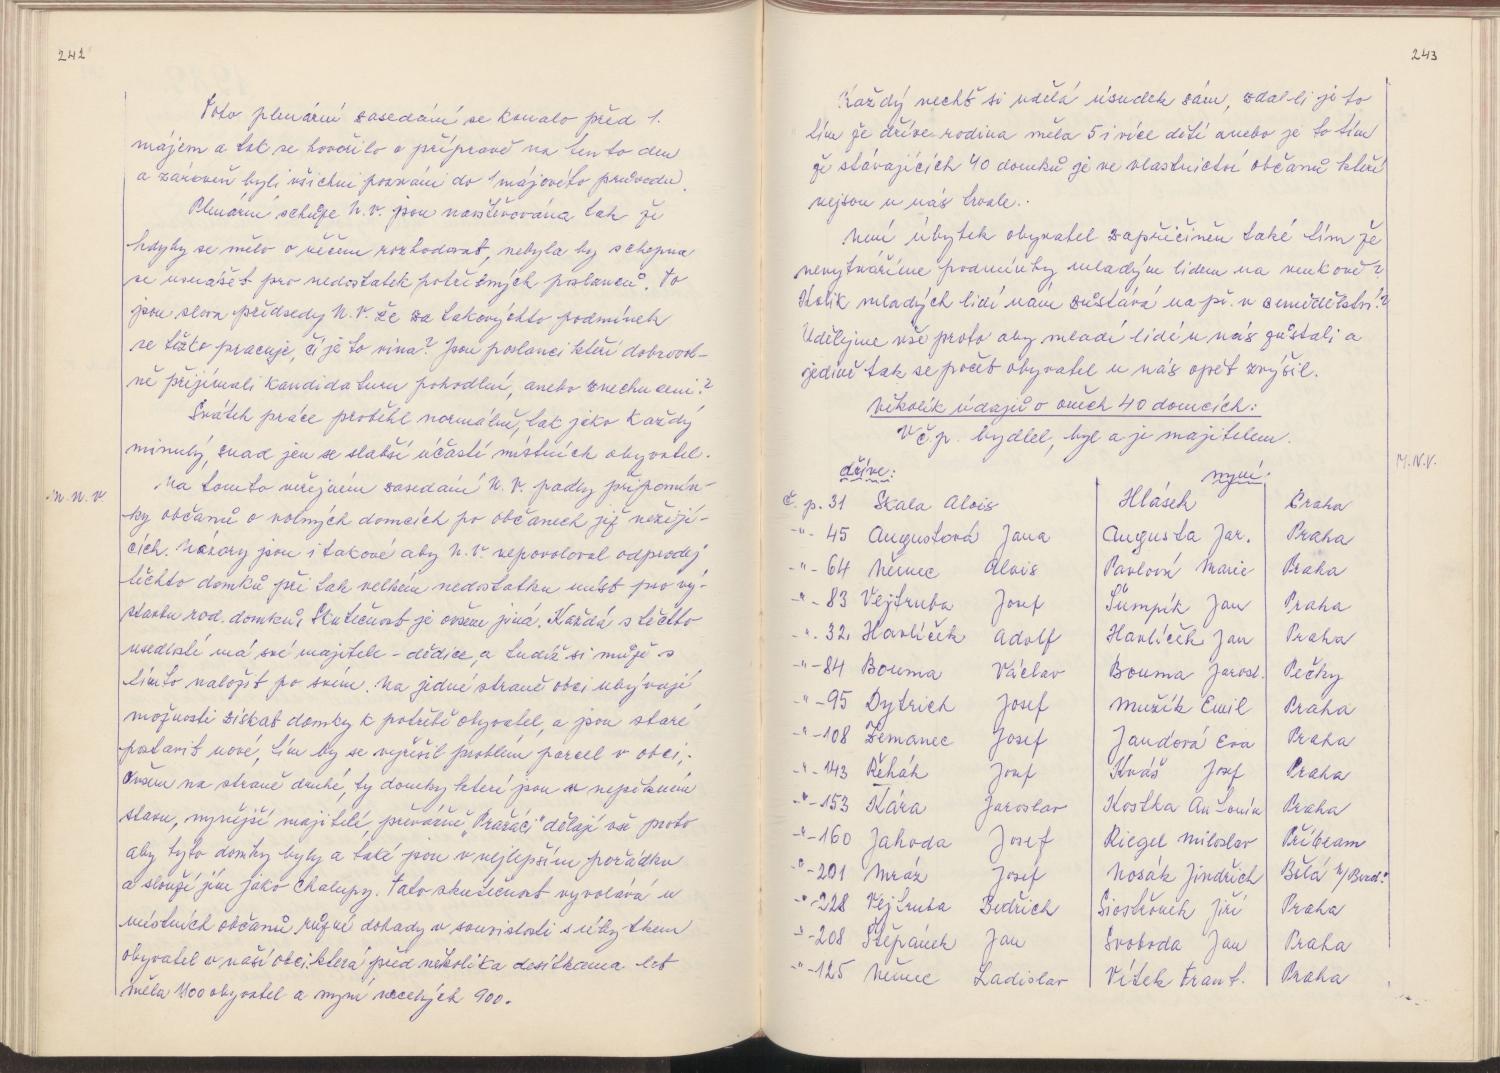 242
Toto plenární zasedání se konalo před 1.
májem a tak se hovořilo o přípravě na tento den
a zároveň byli všichni pozváni do 1 májového průvodu.
Plenární schůze N.V. jsou navštěvována tak že
kdyby se mělo o něčem rozhodovat, nebyla by schopna
se usnášet pro nedostatek potřebných poslanců. To
jsou slova předsedy N.V. že za takovýchto podmínek
se těžko pracuje, čí je to vina? Jsou poslanci kteří dobrovol-
ně přijímali kandidaturu pohodlní, anebo znechuceni?
Svátek práce proběhl normálně, tak jako každý
minulý, snad jen se slabší účastí místních obyvatel.
M.N.V. Na tomto veřejném zasedání N.V. padly připomín-
ky občanů o volných domcích po občanech již nežijí-
cích. Názory jsou i takové aby N.V. nepovoloval odprodej
těchto domků při tak velkém nedostatku míst pro vý-
stavbu rod. domků. Skutečnost je ovšem jiná. Každá s těchto
usedlostí má své majitele - dědice, a tudíž si může s
tímto naložit po svém. Na jedné straně obci ubývají
možnosti získat domky k potřebě obyvatel, a jsou staré
postavit nové, tím by se vyřešil problém parcel v obci,.
Ovšem na straně druhé, ty domky které jsou v nepěkném
stavu, nynější majitelé, převážně „Pražáci" dělají vše proto
aby tyto domky byly a také jsou v nejlepším pořádku
a slouží jim jako chalupy. Tato skutečnost vyvolává u
místních občanů různé dohady v souvislosti s úbytkem
obyvatel v naší obci.která před několika desítkama let
měla 1400 obyvatel a nyní necelých 900.
243
Každý nechť si udělá úsudek sám, zdal-li je to
tím že dříve rodina měla 5 i více dětí anebo je to tím
že stávajících 40 domků je ve vlastnictví občanů kteří
nejsou u nás trvale..
Není úbytek obyvatel zapříčiněn také tím že
nevytváříme podmínky mladým lidem na venkově?
Kolik mladých lidí nám zůstává na př. v zemědělství?
Udělejme vše proto aby mladí lidé u nás zůstali a
jedině tak se počet obyvatel u nás opět zvýšil.
Několik údajů o oněch 40 domcích:
V č.p. bydlel, byl a je majitelem.
M.N.V.
dříve: nyní:
č.p. 31 Skala Alois Hlásek Praha
-"- 45 Augustová Jana Augusta Jar. Praha
-"- 64 Němec Alois Pavlová Marie Praha
-"- 83 Vejtruba Josef Šumpík Jan Praha
-"- 32. Havlíček Adolf Havlíček Jan Praha
-"- 84 Bouma Václav Bouma Jarosl. Pečky
-"- 95 Dytrich Josef Mužík Emil Praha
-"- 108 Zemanec Josef Jandová Eva Praha
-"- 143 Řehák Josef Kváš Josef Praha
-"- 153 Kára Jaroslav Kostka Antonín Praha
-"- 160 Jahoda Josef Riegel Miloslav Příbram
-"- 201 Mráz Josef Nosák Jindřich Bělá n/Bezd.
-"- 228 Vejtruba Bedřich Siostřonek Jiří Praha
-"- 208 Štěpánek Jan Svoboda Jan Praha
-"- 125 Němec Ladislav Vítek Frant. Praha